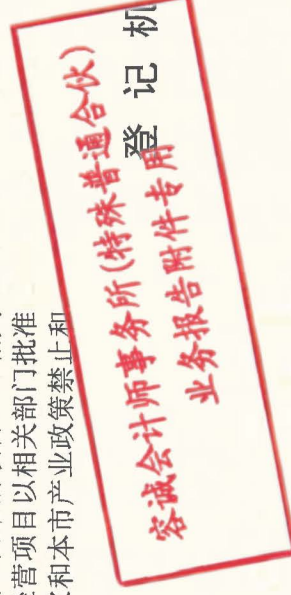 营项目以相关部门批准
和本市产业政策禁止和
登记机
容诚会计师事务所(特殊普通合伙)
业务报告附件专用